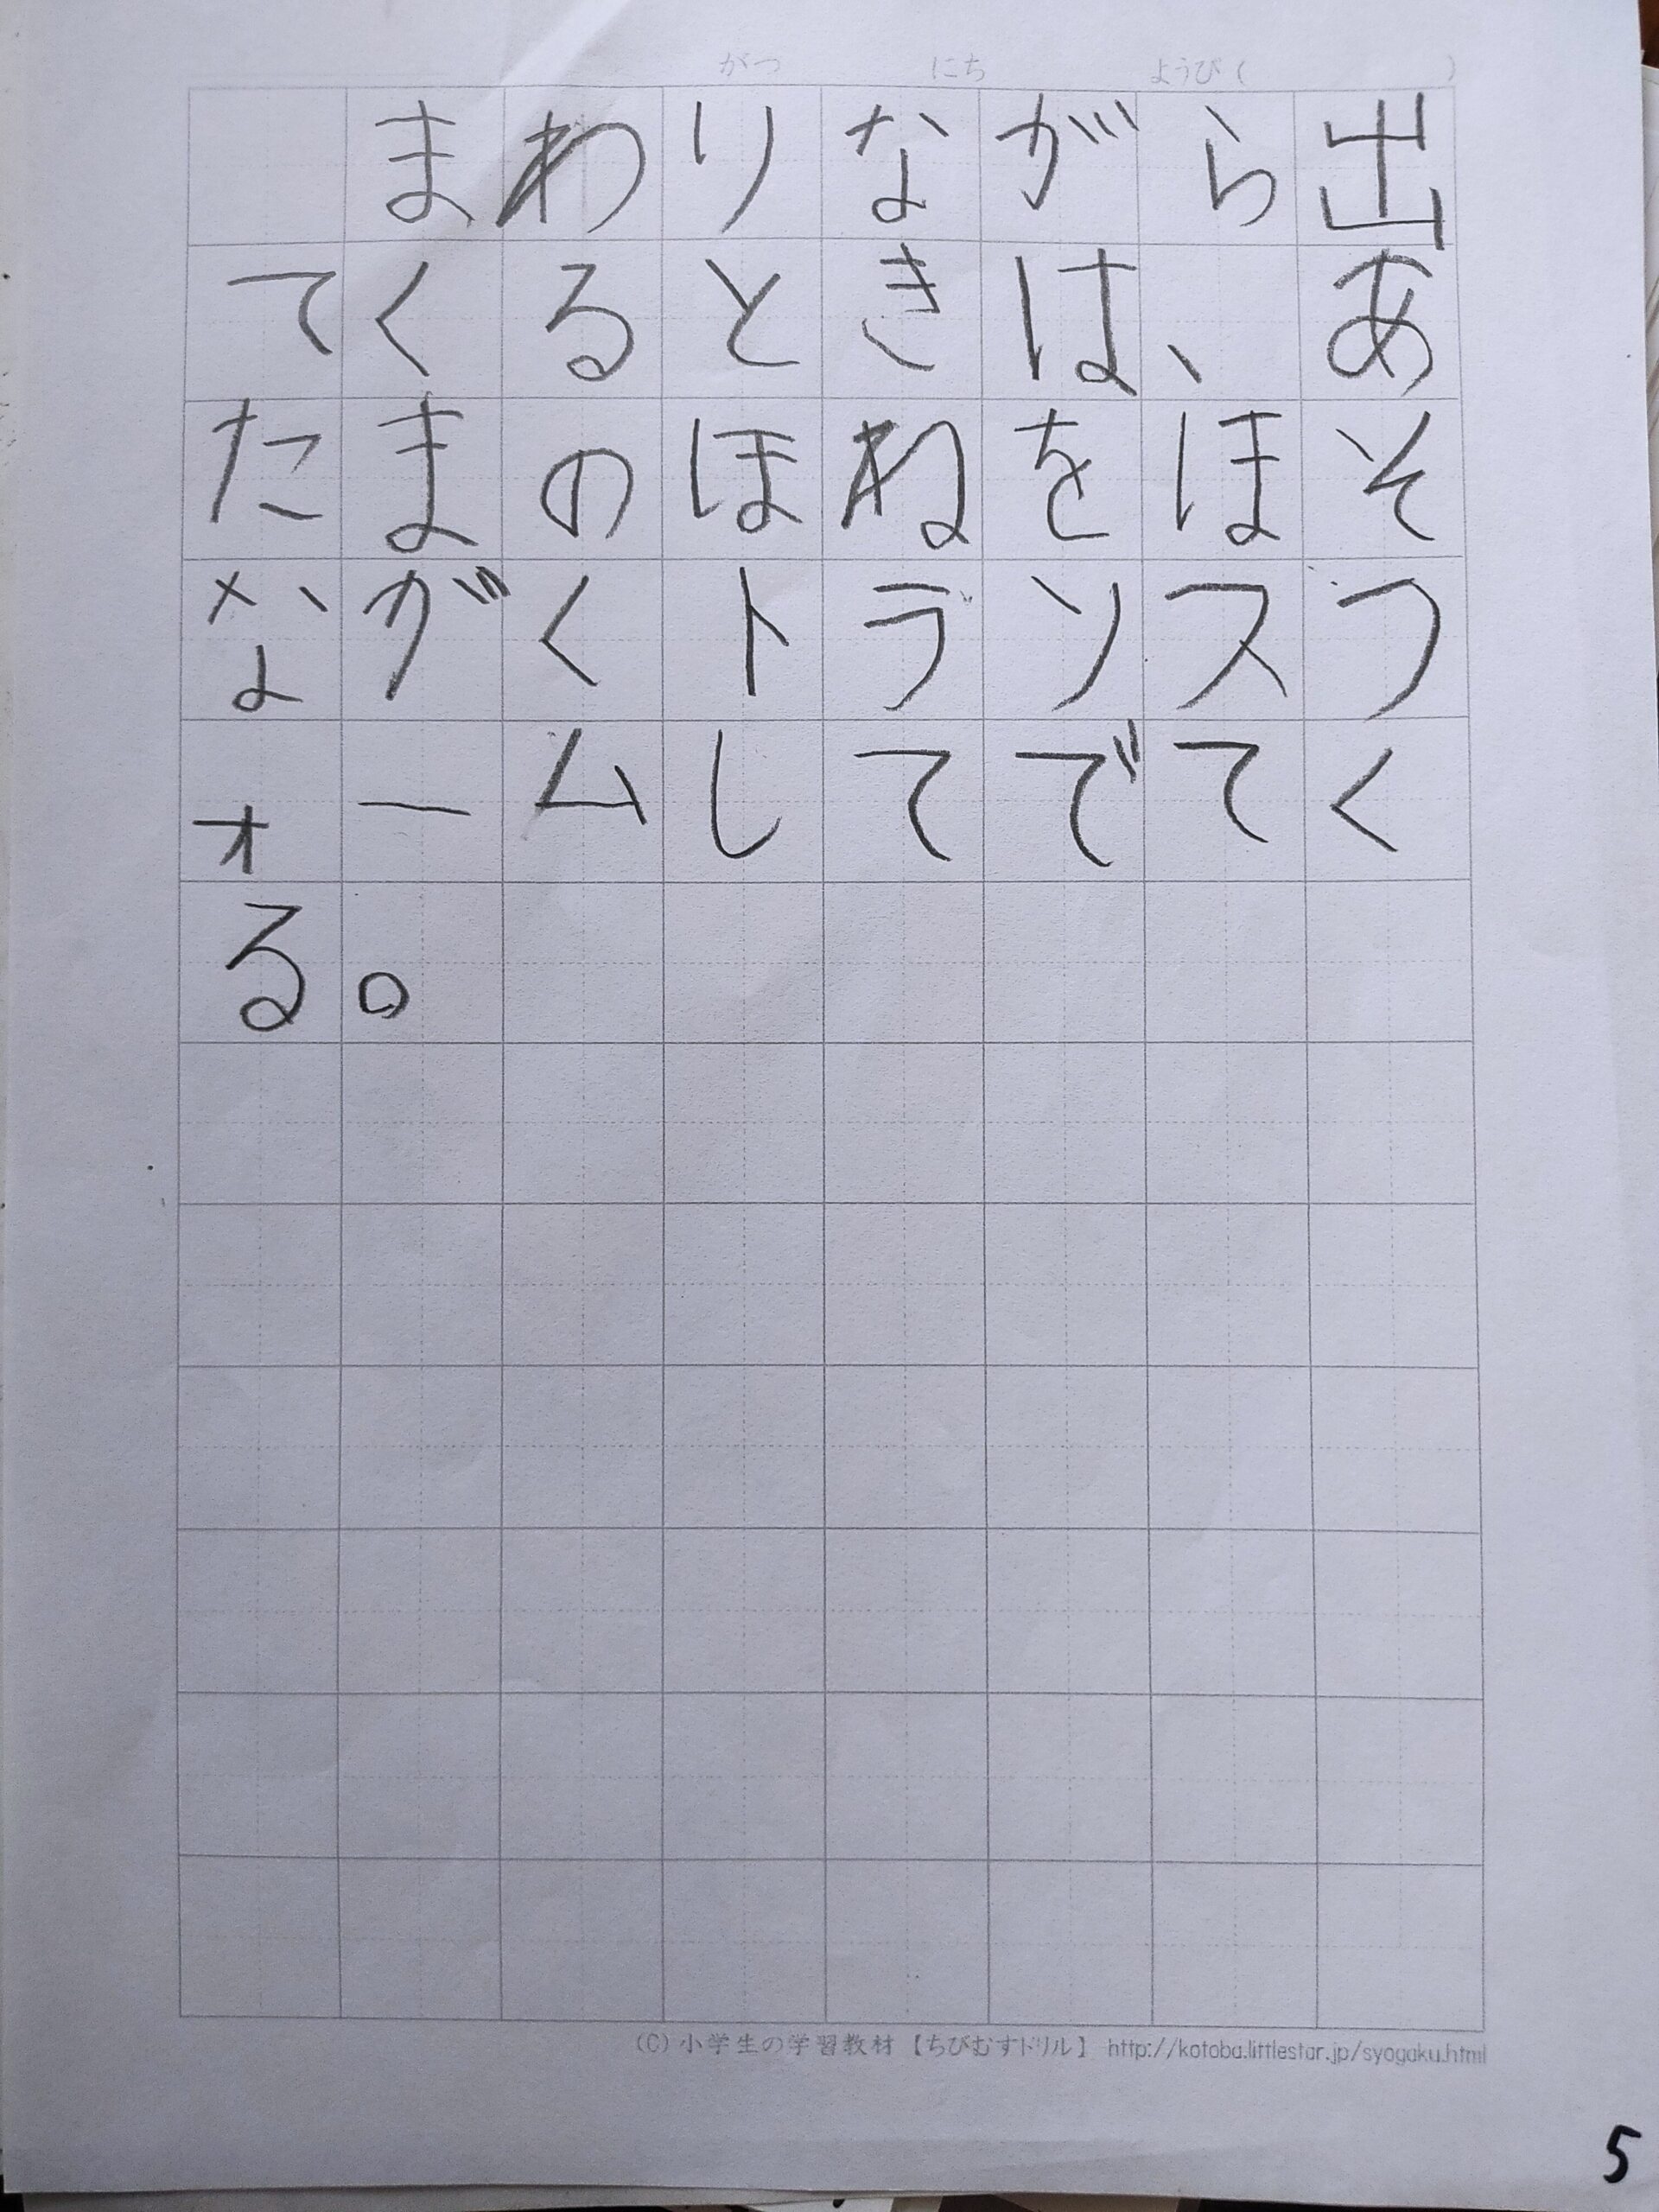 がつ　にち　ようび（　）
まわりながら出
てくるときは、あ
たまのほねをほそ
ながくトランスフ
ォームしてでてく
る。
(C) 小学生の学習教材【ちびむすドリル】 http://kotoba.littlestar.jp/syogaku.html
5